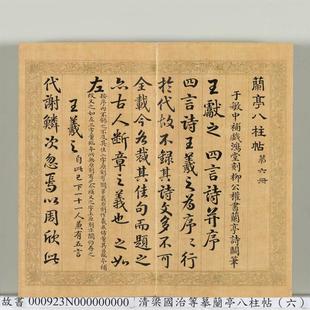 蘭亭八柱帖第六冊
于敏中補戲鴻堂刻柳公權書蘭亭詩闕筆
王獻之四言詩并序
四言詩王羲之為序序行
於代故不錄其詩文多不可
全載今各裁其佳句而題之
亦古人斷章之義也之如
左
王羲之自此已下一十一人兼有五言
代謝鱗次忽焉以周欣此
故書 000923N000000000 清梁國治等摹蘭亭八柱帖(六)